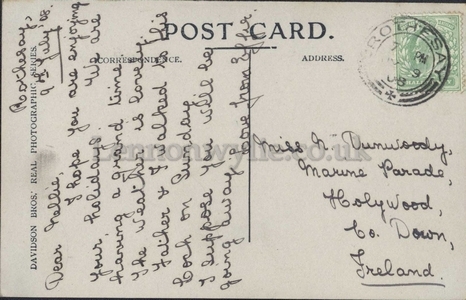 POST CARD.
CORRESPONDENCE.
ADDRESS.
DAVIDSON BROS.' REAL PHOTOGRAPHIC SERIES.
Rothesay,
9th July, '08.
Dear Nellie,
I hope you are enjoying
your holidays. We are
having a grand time.
The weather is lovely.
Father & I walked to this
Loch on Sunday.
I suppose you will be
going away. Love from
ROTHESAY
Miss N. Dunwoody,
Marine Parade,
Holywood,
Co. Down,
Ireland.
Lennonwylie.co.uk